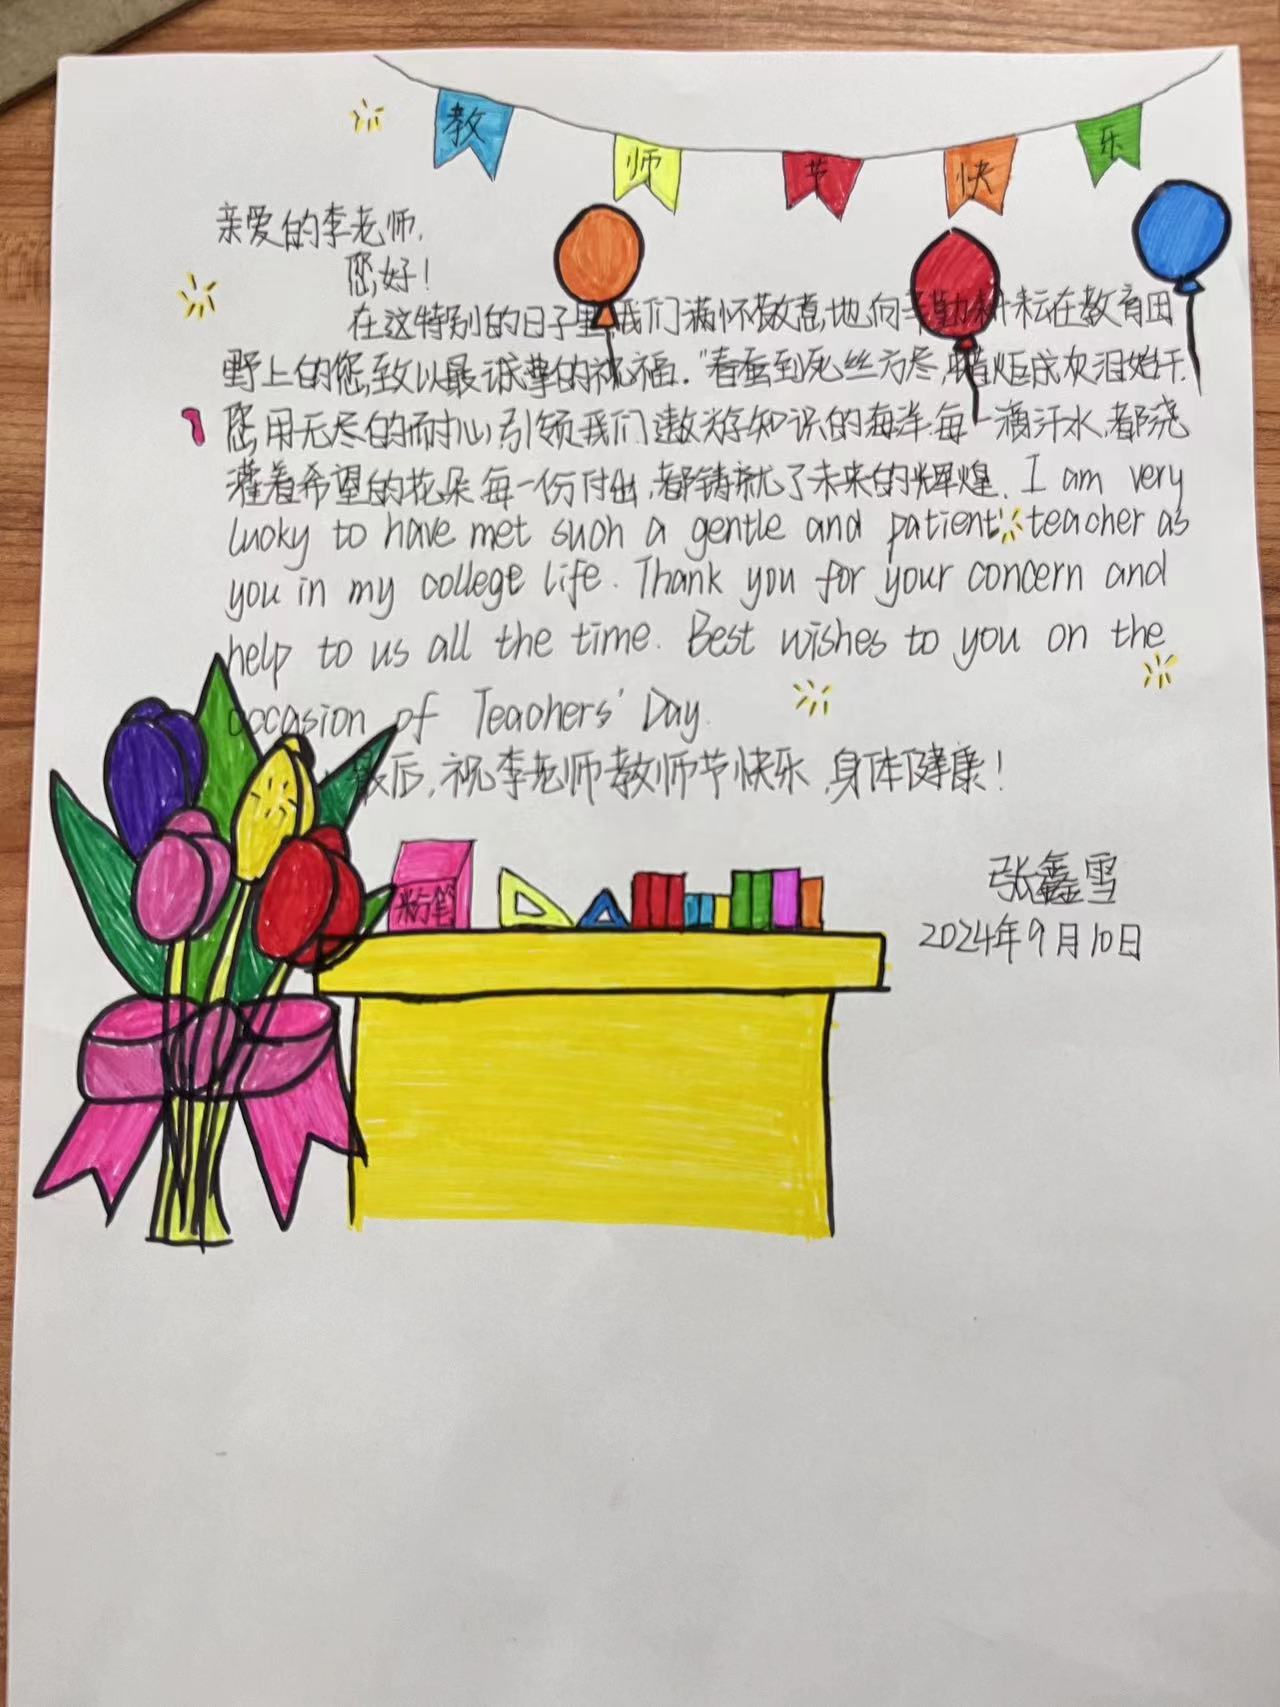 教师节快乐
亲爱的李老师,
您好!
在这特别的日子里,我们满怀敬意,地向辛勤耕耘在教育田
野上的您,致以最诚挚的祝福.“春蚕到死丝方尽,蜡炬成灰泪始干.
您用无尽的耐心,引领我们遨游知识的海洋.每一滴汗水,都浇
灌着希望的花朵.每一份付出,都铸就了未来的辉煌. I am very
lucky to have met such a gentle and patient teacher as
you in my college life. Thank you for your concern and
help to us all the time. Best wishes to you on the
occasion of Teachers' Day.
最后,祝李老师教师节快乐,身体健康!
粉笔
张鑫雪
2024年9月10日